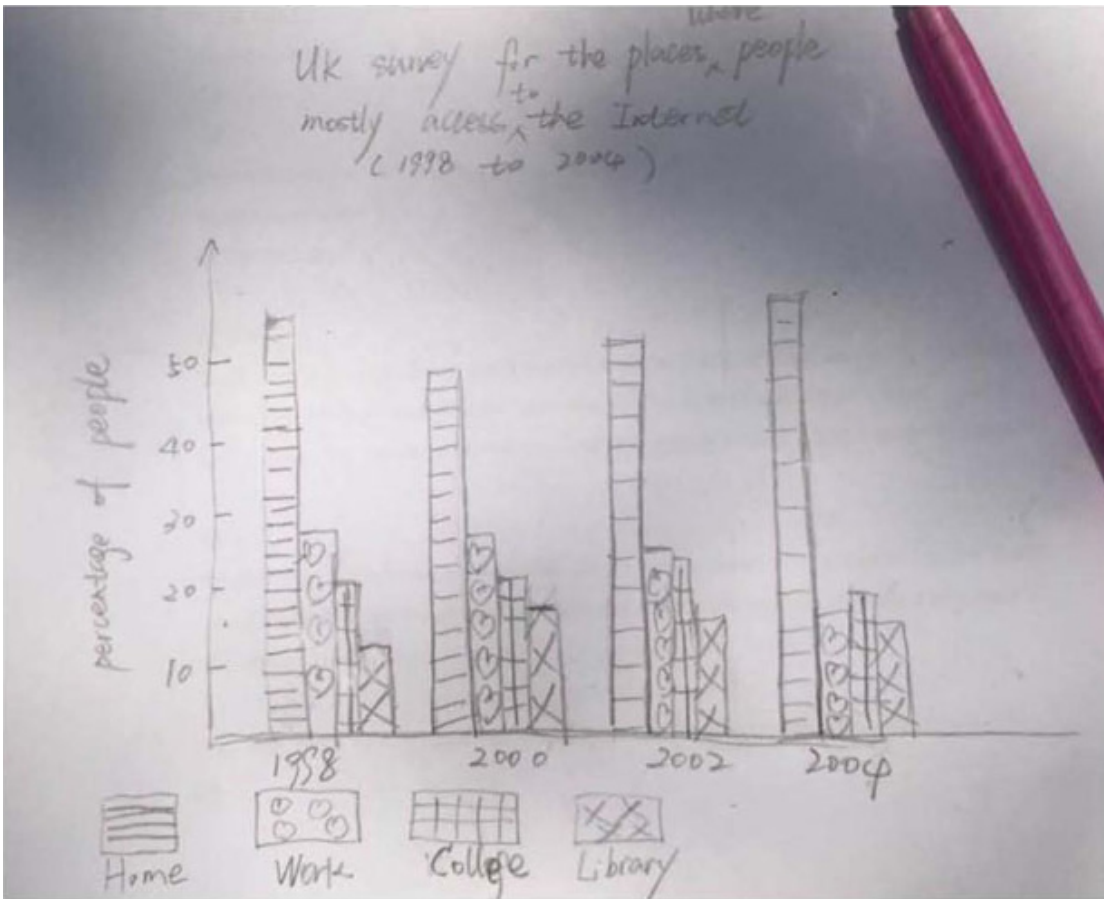 where
UK survey for the places‸ people
to
mostly access‸ the Internet
(1998 to 2004)
percentage of people
50
40
30
20
10
1998 2000 2002 2004
Home Work College Library